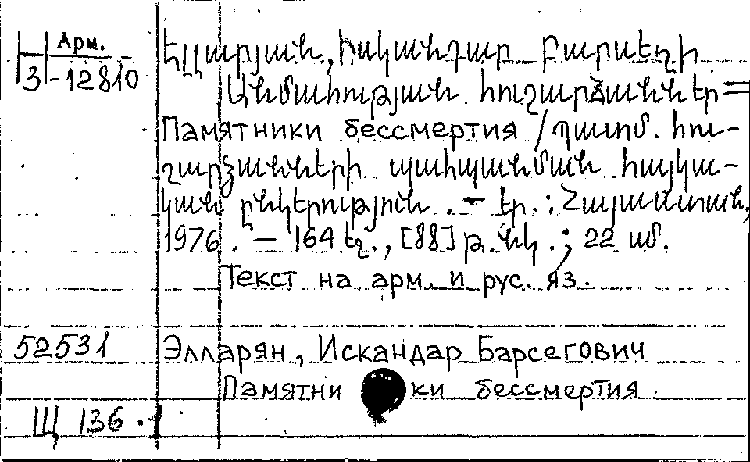 Арм.
3-12810
Էլլարյան, Իսկանդար Բարսեղի
Անմահության հուշարձաններ =
Памятники бессмертия / պատմ. հու-
շարձանների պահպանման հայկա-
կան ընկերություն . — Եր. : Հայաստան,
1976 . — 164 էջ., [88] թ. նկ . ; 22 սմ.
Текст на арм. и рус. яз.
52531 Элларян, Искандар Барсегович
Памятни ки бессмертия .
Щ 136 .